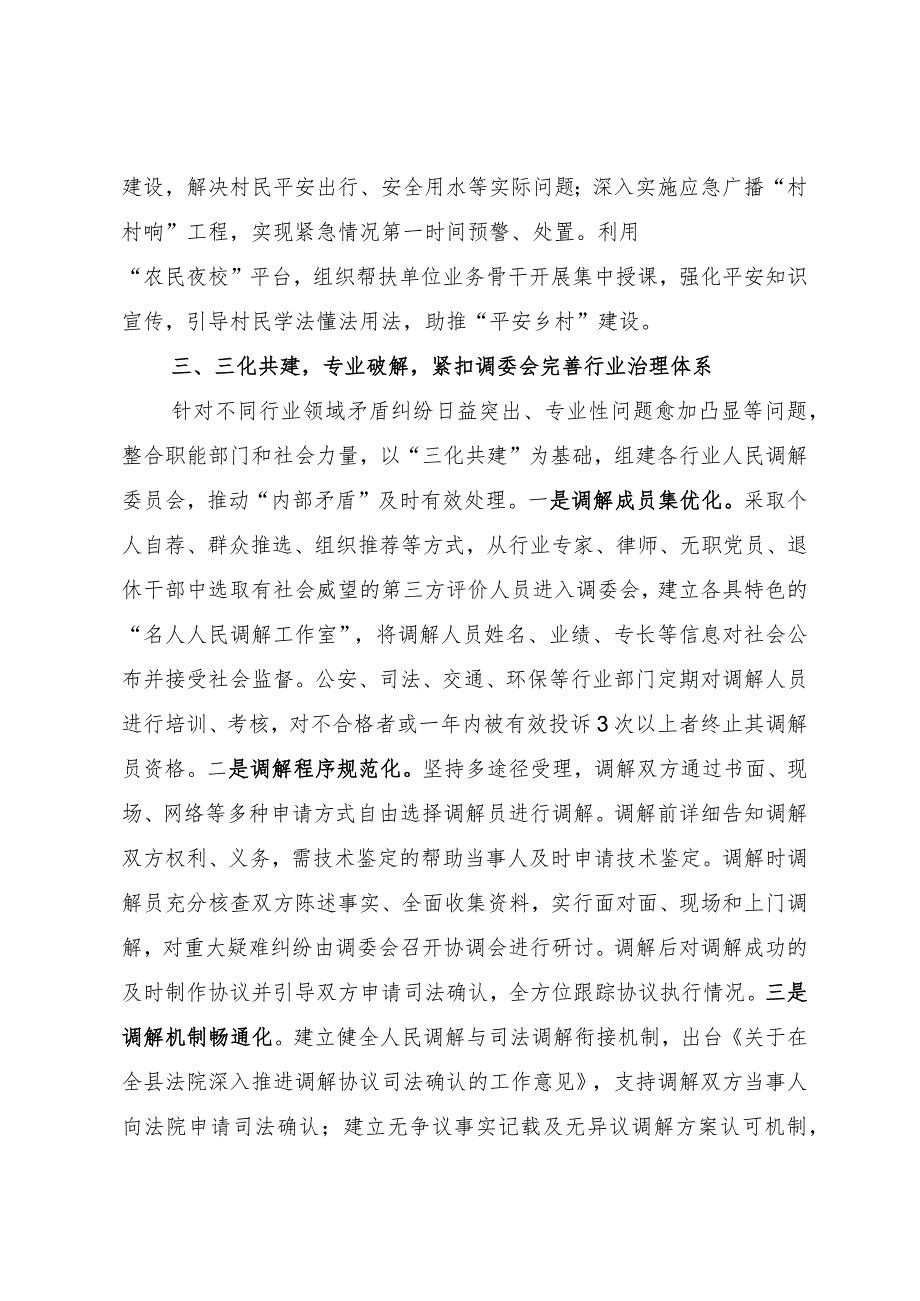 建设，解决村民平安出行、安全用水等实际问题；深入实施应急广播“村
村响”工程，实现紧急情况第一时间预警、处置。利用
“农民夜校”平台，组织帮扶单位业务骨干开展集中授课，强化平安知识
宣传，引导村民学法懂法用法，助推“平安乡村”建设。
三、三化共建，专业破解，紧扣调委会完善行业治理体系
针对不同行业领域矛盾纠纷日益突出、专业性问题愈加凸显等问题，
整合职能部门和社会力量，以“三化共建”为基础，组建各行业人民调解
委员会，推动“内部矛盾”及时有效处理。一是调解成员集优化。采取个
人自荐、群众推选、组织推荐等方式，从行业专家、律师、无职党员、退
休干部中选取有社会威望的第三方评价人员进入调委会，建立各具特色的
“名人人民调解工作室”，将调解人员姓名、业绩、专长等信息对社会公
布并接受社会监督。公安、司法、交通、环保等行业部门定期对调解人员
进行培训、考核，对不合格者或一年内被有效投诉3次以上者终止其调解
员资格。二是调解程序规范化。坚持多途径受理，调解双方通过书面、现
场、网络等多种申请方式自由选择调解员进行调解。调解前详细告知调解
双方权利、义务，需技术鉴定的帮助当事人及时申请技术鉴定。调解时调
解员充分核查双方陈述事实、全面收集资料，实行面对面、现场和上门调
解，对重大疑难纠纷由调委会召开协调会进行研讨。调解后对调解成功的
及时制作协议并引导双方申请司法确认，全方位跟踪协议执行情况。三是
调解机制畅通化。建立健全人民调解与司法调解衔接机制，出台《关于在
全县法院深入推进调解协议司法确认的工作意见》，支持调解双方当事人
向法院申请司法确认；建立无争议事实记载及无异议调解方案认可机制，